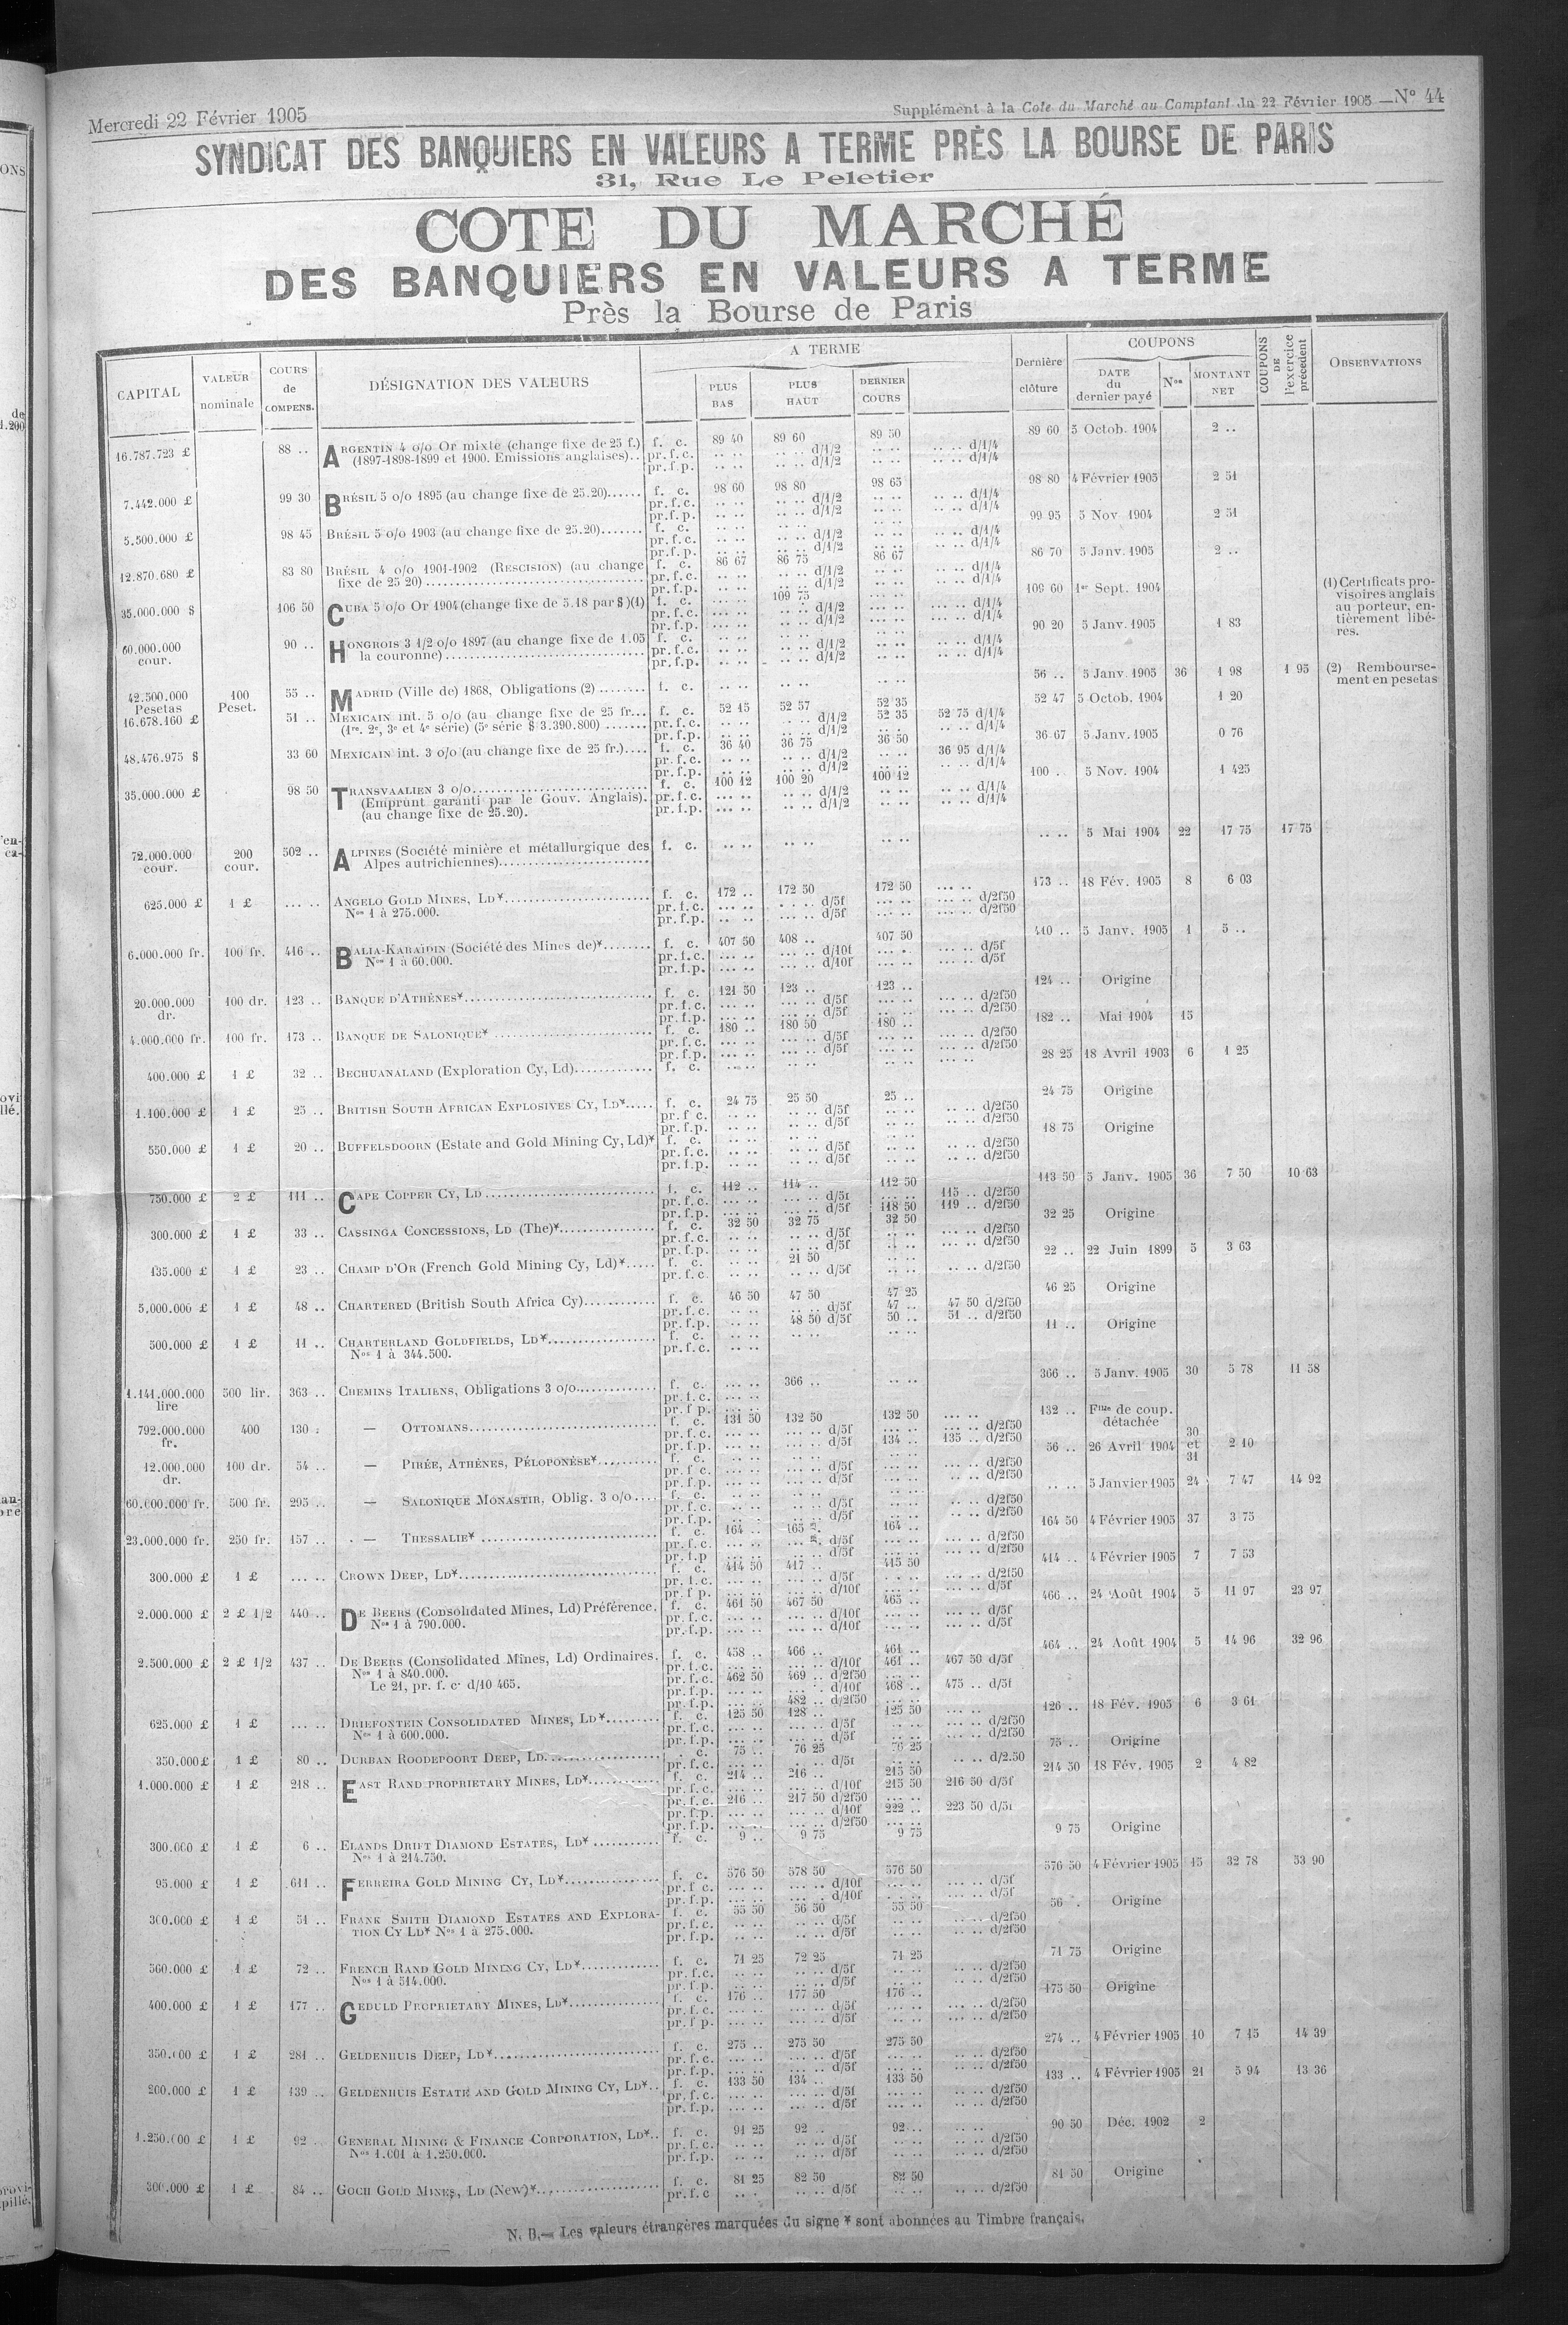 Mercredi 22 Février 1905
Supplément à la Cote du Marché au Comptant du 22 Février 1905 — N° 44
SYNDICAT DES BANQUIERS EN VALEURS A TERME PRÈS LA BOURSE DE PARIS
31, Rue Le Peletier
COTE DU MARCHÉ
DES BANQUIERS EN VALEURS A TERME
Près la Bourse de Paris
CAPITAL VALEUR nominale COURS de COMPENS. DÉSIGNATION DES VALEURS A TERME PLUS BAS PLUS HAUT DERNIER COURS Dernière clôture COUPONS DATE du dernier payé Nos MONTANT NET COUPONS DE l'exercice précédent OBSERVATIONS
16.787.723 £ 88 .. ARGENTIN 4 o/o Or mixte (change fixe de 25 f.) f. c. 89 40 89 60 89 50 89 60 5 Octob. 1904 2 ..
(1897-1898-1899 et 1900. Emissions anglaises).. pr.f.c. .. .. .. .. d/1/2 .. .. .. .. d/1/4
pr.f.p. .. .. .. .. d/1/2 .. .. d/1/4
7.442.000 £ 99 30 BRÉSIL 5 o/o 1895 (au change fixe de 25.20)...... f. c. 98 60 98 80 98 65 98 80 4 Février 1905 2 51
pr.f.c. .. .. .. .. d/1/2 .. .. .. .. d/1/4
pr.f.p. .. .. .. .. d/1/2 .. .. d/1/4
5.500.000 £ 98 45 BRÉSIL 5 o/o 1903 (au change fixe de 25.20)....... f. c. .. .. .. .. .. .. 99 95 5 Nov 1904 2 51
pr.f.c. .. .. .. .. d/1/2 .. .. .. .. d/1/4
pr.f.p. .. .. .. .. d/1/2 .. .. d/1/4
12.870.680 £ 83 80 BRÉSIL 4 o/o 1901-1902 (RESCISION) (au change f. c. 86 67 86 75 86 67 86 70 5 Janv. 1905 2 ..
fixe de 25 20) pr.f.c. .. .. .. .. d/1/2 .. .. .. .. d/1/4
pr.f.p. .. .. .. .. d/1/2 .. .. d/1/4
35.000.000 $ 106 50 CUBA 5 o/o Or 1904 (change fixe de 5.18 par $)(1) f. c. 109 75 109 60 1er Sept. 1904 (1) Certificats provisoires anglais au porteur, entièrement libérés.
pr.f.c. .. .. .. .. d/1/2 .. .. d/1/4
pr.f.p. .. .. .. .. d/1/2 .. .. d/1/4
60.000.000 cour. 90 .. HONGROIS 3 1/2 o/o 1897 (au change fixe de 1.05 f. c. .. .. .. .. .. .. 90 20 5 Janv. 1905 1 83
la couronne) pr.f.c. .. .. .. .. d/1/2 .. .. d/1/4
pr.f.p. .. .. .. .. d/1/2 .. .. d/1/4
42.500.000 Pesetas 100 Peset. 55 .. MADRID (Ville de) 1868, Obligations (2) ........ f. c. .. .. .. .. .. .. 56 .. 5 Janv. 1905 36 1 98 1 95 (2) Remboursement en pesetas
16.678.160 £ 51 .. MEXICAIN int. 5 o/o (au change fixe de 25 fr... f. c. 52 45 52 57 52 35 52 47 5 Octob. 1904 1 20
(1re. 2e, 3e et 4e série) (5e série $ 3.390.800) ....... pr.f.c. .. .. .. .. d/1/2 52 35 52 75 d/1/4
pr.f.p. .. .. .. .. d/1/2 .. .. d/1/4
48.476.975 $ 33 60 MEXICAIN int. 3 o/o (au change fixe de 25 fr.).... f. c. 36 40 36 75 36 50 36 67 5 Janv. 1905 0 76
pr.f.c. .. .. .. .. d/1/2 .. .. 36 95 d/1/4
pr.f.p. .. .. .. .. d/1/2 .. .. d/1/4
35.000.000 £ 98 50 TRANSVAALIEN 3 o/o f. c. 100 12 100 20 100 12 100 .. 5 Nov. 1904 1 425
(Emprunt garanti par le Gouv. Anglais). pr.f.c. ... .. .. .. d/1/2 .. .. d/1/4
(au change fixe de 25.20). pr.f.p. ... .. .. .. d/1/2 .. .. d/1/4
72.000.000 cour. 200 cour. 502 .. ALPINES (Société minière et métallurgique des f. c. .. .. .. .. .. .. .. .. 5 Mai 1904 22 17 75 17 75
Alpes autrichiennes)
625.000 £ 1 £ ... .. ANGELO GOLD MINES, LD¥ f. c. 172 .. 172 50 172 50 ... .. 173 .. 18 Fév. 1905 8 6 03
Nos 1 à 275.000. pr.f.c. ... .. d/5f ... .. d/2f50
pr.f.p. .. .. d/5f ... .. d/2f50
6.000.000 fr. 100 fr. 416 .. BALIA-KARAÏDIN (Société des Mines de)¥........ f. c. 407 50 408 .. 407 50 410 .. 5 Janv. 1905 1 5 ..
Nos 1 à 60.000. pr.f.c. ... .. d/10f ... .. d/5f
pr.f.p. ... .. d/10f ... .. d/5f
20.000.000 dr. 100 dr. 123 .. BANQUE D'ATHÈNES¥ f. c. 121 50 123 .. 123 .. 124 .. Origine
pr.f.c. ... .. d/5f ... .. d/2f50
pr.f.p. ... .. d/5f ... .. d/2f50
4.000.000 fr. 100 fr. 173 .. BANQUE DE SALONIQUE¥ f. c. 180 .. 180 50 180 .. 182 .. Mai 1904 15
pr.f.c. ... .. d/5f ... .. d/2f50
pr.f.p. ... .. d/5f ... .. d/2f50
400.000 £ 1 £ 32 .. BECHUANALAND (Exploration Cy, Ld)............ f. c. .. .. .. .. .. .. 28 25 18 Avril 1903 6 1 25
1.100.000 £ 1 £ 25 .. BRITISH SOUTH AFRICAN EXPLOSIVES CY, LD¥..... f. c. 24 75 25 50 25 .. 24 75 Origine
pr.f.c. .. .. d/5f .. .. d/2f50
pr.f.p. .. .. d/5f .. .. d/2f50
550.000 £ 1 £ 20 .. BUFFELSDOORN (Estate and Gold Mining Cy, Ld)¥ f. c. .. .. .. .. .. .. 18 75 Origine
pr.f.c. .. .. d/5f .. .. d/2f50
pr.f.p. .. .. d/5f .. .. d/2f50
750.000 £ 2 £ 111 .. CAPE COPPER CY, LD f. c. 112 .. 114 .. 112 50 113 50 5 Janv. 1905 36 7 50 10 63
pr.f.c. ... .. d/5f ... .. 115 .. d/2f50
pr.f.p. ... .. d/5f 118 50 119 .. d/2f50
300.000 £ 1 £ 33 .. CASSINGA CONCESSIONS, LD (The)¥ f. c. 32 50 32 75 32 50 32 25 Origine
pr.f.c. .. .. d/5f ... .. d/2f50
pr.f.p. .. .. d/5f ... .. d/2f50
135.000 £ 1 £ 23 .. CHAMP D'OR (French Gold Mining Cy, Ld)¥..... f. c. .. .. 21 50 .. .. 22 .. 22 Juin 1899 5 3 63
pr.f.c. .. .. d/5f .. .. d/2f50
5.000.000 £ 1 £ 48 .. CHARTERED (British South Africa Cy)........... f. c. 46 50 47 50 47 25 46 25 Origine
pr.f.c. .. .. d/5f 47 .. 47 50 d/2f50
pr.f.p. .. .. 48 50 d/5f 50 .. 51 .. d/2f50
500.000 £ 1 £ 11 .. CHARTERLAND GOLDFIELDS, LD¥ f. c. .. .. .. .. .. .. 11 .. Origine
Nos 1 à 344.500. pr.f.c. .. ..
1.141.000.000 lire 500 lir. 363 .. CHEMINS ITALIENS, Obligations 3 o/o f. c. ... .. 366 .. .. .. 366 .. 5 Janv. 1905 30 5 78 11 58
pr.f.c. ... ..
pr.f.p. ... ..
792.000.000 fr. 400 130 . — OTTOMANS f. c. 131 50 132 50 132 50 ... .. 132 .. Flle de coup. détachée
pr.f.c. ... .. d/5f ... .. d/2f50
pr.f.p. ... .. d/5f 134 .. 135 .. d/2f50
12.000.000 dr. 100 dr. 54 .. — PIRÉE, ATHÈNES, PÉLOPONÈSE¥ f. c. .. .. .. .. .. .. 56 .. 26 Avril 1904 30 et 31 2 10
pr.f.c. .. .. d/5f ... .. d/2f50
pr.f.p. .. .. d/5f .. .. d/2f50
60.000.000 fr. 500 fr. 295 .. — SALONIQUE MONASTIR, Oblig. 3 o/o.... f. c. .. .. .. .. .. .. .. .. 5 Janvier 1905 24 7 47 14 92
pr.f.c. .. .. d/5f .. .. d/2f50
pr.f.p. .. .. d/5f .. .. d/2f50
23.000.000 fr. 250 fr. 157 .. — THESSALIE¥ f. c. 164 .. 165 164 .. 164 50 4 Février 1905 37 3 75
pr.f.c. ... .. d/5f ... .. d/2f50
pr.f.p ... .. d/5f ... .. d/2f50
300.000 £ 1 £ ... .. CROWN DEEP, LD¥ f. c. 414 50 417 .. 415 50 414 .. 4 Février 1905 7 7 53
pr.f.c. ... .. d/5f ... .. d/2f50
pr.f.p. ... .. d/10f ... .. d/5f
2.000.000 £ 2 £ 1/2 440 .. DE BEERS (Consolidated Mines, Ld) Préférence. f. c. 461 50 467 50 465 .. 466 .. 24 Août 1904 5 11 97 23 97
Nos 1 à 790.000. pr.f.c. ... .. d/10f ... .. d/5f
pr.f.p. ... .. d/10f ... .. d/5f
2.500.000 £ 2 £ 1/2 437 .. DE BEERS (Consolidated Mines, Ld) Ordinaires. f. c. 458 .. 466 .. 461 .. 464 .. 24 Août 1904 5 14 96 32 96
Nos 1 à 840.000. pr.f.c. ... .. d/10f 461 .. 467 50 d/5f
Le 21, pr. f. c. d/10 465. pr.f.c. 462 50 469 .. d/2f50 ... ..
pr.f.p. ... .. d/10f 468 .. 475 .. d/5f
pr.f.p. ... .. 482 .. d/2f50 ... ..
625.000 £ 1 £ ... .. DRIEFONTEIN CONSOLIDATED MINES, LD¥ f. c. 125 50 128 .. 125 50 ... .. 126 .. 18 Fév. 1905 6 3 61
Nos 1 à 600.000. pr.f.c. ... .. d/5f ... .. d/2f50
pr.f.p. ... .. d/5f ... .. d/2f50
350.000 £ 1 £ 80 .. DURBAN ROODEPOORT DEEP, LD. f. c. 75 .. 76 25 76 25 75 .. Origine
pr.f.c. .. .. d/5f .. .. d/2.50
1.000.000 £ 1 £ 218 .. EAST RAND PROPRIETARY MINES, LD¥ f. c. 214 .. 216 .. 215 50 214 50 18 Fév. 1905 2 4 82
pr.f.c. ... .. d/10f 215 50 216 50 d/5f
pr.f.c. 216 .. 217 50 d/2f50 ... ..
pr.f.p. ... .. d/10f 222 .. 223 50 d/5f
pr.f.p. ... .. d/2f50 ... ..
300.000 £ 1 £ 6 .. ELANDS DRIFT DIAMOND ESTATES, LD¥ f. c. 9 .. 9 75 9 75 9 75 Origine
Nos 1 à 214.750.
95.000 £ 1 £ 611 .. FERREIRA GOLD MINING CY, LD¥ f. c. 576 50 578 50 576 50 576 50 4 Février 1905 15 32 78 53 90
pr.f.c. ... .. d/10f ... .. d/5f
pr.f.p. ... .. d/10f ... .. d/5f
300.000 £ 1 £ 51 .. FRANK SMITH DIAMOND ESTATES AND EXPLORA- f. c. 55 50 56 50 55 50 56 . Origine
TION CY LD¥ Nos 1 à 275.000. pr.f.c. .. .. d/5f .. .. d/2f50
pr.f.p. .. .. d/5f .. .. d/2f50
560.000 £ 1 £ 72 .. FRENCH RAND GOLD MINING CY, LD¥ f. c. 71 25 72 25 71 25 71 75 Origine
Nos 1 à 514.000. pr.f.c. .. .. d/5f .. .. d/2f50
pr.f.p. .. .. d/5f .. .. d/2f50
400.000 £ 1 £ 177 .. GEDULD PROPRIETARY MINES, LD¥ f. c. 176 .. 177 50 176 .. 175 50 Origine
pr.f.c. ... .. d/5f ... .. d/2f50
pr.f.p. ... .. d/5f ... .. d/2f50
350.000 £ 1 £ 281 .. GELDENHUIS DEEP, LD¥ f. c. 275 .. 275 50 275 50 274 .. 4 Février 1905 10 7 15 14 39
pr.f.c. ... .. d/5f .. .. d/2f50
pr.f.p. ... .. d/5f .. .. d/2f50
200.000 £ 1 £ 139 .. GELDENHUIS ESTATE AND GOLD MINING CY, LD¥.. f. c. 133 50 134 .. 133 50 133 .. 4 Février 1905 21 5 94 13 36
pr.f.c. ... .. d/5f .. .. d/2f50
pr.f.p. ... .. d/5f .. .. d/2f50
1.250.000 £ 1 £ 92 .. GENERAL MINING & FINANCE CORPORATION, LD¥.. f. c. 91 25 92 .. 92 .. .. .. 90 50 Déc. 1902 2
Nos 1.001 à 1.250.000. pr.f.c. .. .. d/5f .. .. d/2f50
pr.f.p. .. .. d/5f .. .. d/2f50
300.000 £ 1 £ 84 .. GOCH GOLD MINES, LD (New)¥ f. c. 81 25 82 50 82 50 81 50 Origine
pr.f.c .. . .. .. d/5f .. .. d/2f50
N. B.— Les valeurs étrangères marquées du signe ¥ sont abonnées au Timbre français.